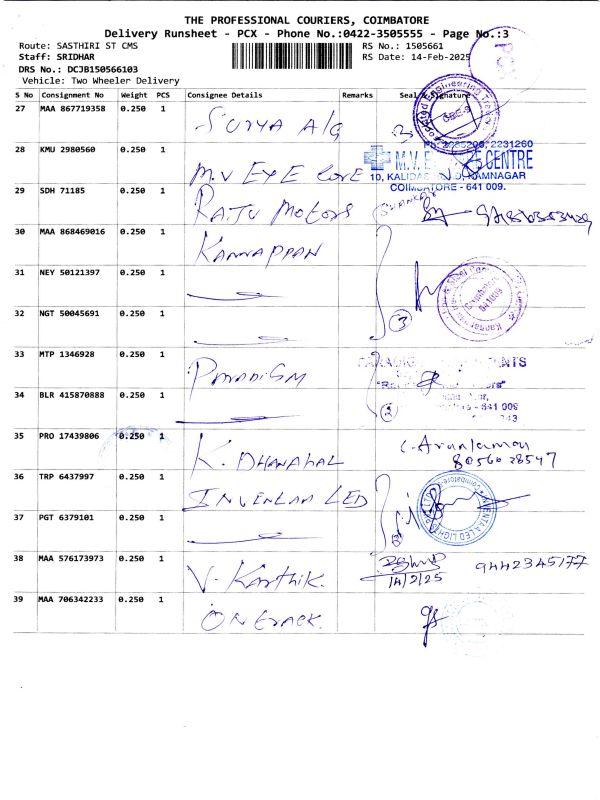 THE PROFESSIONAL COURIERS, COIMBATORE
Delivery Runsheet - PCX - Phone No.:0422-3505555 - Page No.:3
Route: SASTHIRI ST CMS
RS No.: 1505661
Staff: SRIDHAR
RS Date: 14-Feb-2025
DRS No.: DCJB150566103
Vehicle: Two Wheeler Delivery
S No Consignment No Weight PCS Consignee Details Remarks Seal & Signature
27 MAA 867719358 0.250 1 SURYA A/G
28 KMU 2980560 0.250 1 M.V EYE CARE
2231260
M.V. E CENTRE
10, KALIDAS RAMNAGAR
COIMBATORE - 641 009.
29 SDH 71185 0.250 1 RAJU Motors
30 MAA 868469016 0.250 1 KANNAPPAN
31 NEY 50121397 0.250 1
32 NGT 50045691 0.250 1
3
33 MTP 1346928 0.250 1 PARADIGM
34 BLR 415870888 0.250 1
2
- 641 009
35 PRO 17439806 0.250 1 K. DHANAPAL
8056028547
36 TRP 6437997 0.250 1 INVENLAA LED
37 PGT 6379101 0.250 1
38 MAA 576173973 0.250 1 V. Karthik.
14/2/25
9442345177
39 MAA 706342233 0.250 1 ON Track.